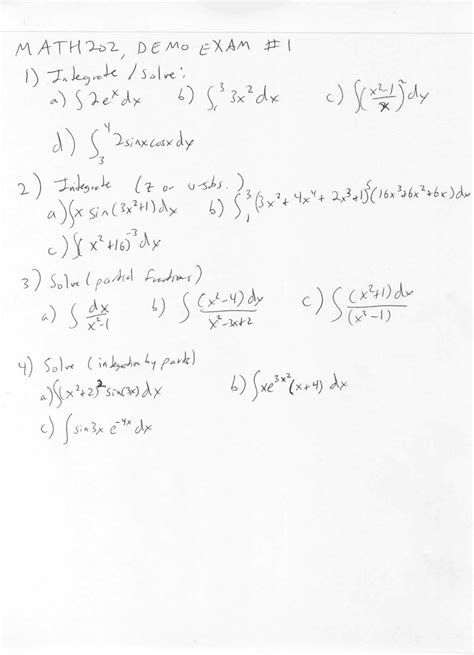 MATH202, DEMO EXAM #1
1) Integrate / Solve:
a) ∫2eˣdx b) ∫₁³ 3x²dx c) ∫(x²-1/x)²dx
d) ∫₃⁴ 2sinxcosxdx
2) Integrate (z or u-subs.)
a) ∫x sin(3x²+1)dx b) ∫₁³(3x²+4x⁴+2x³+1)⁵(16x³+6x²+6x)dx
c) ∫(x²+16)⁻³dx
3) Solve (partial fractions)
a) ∫ dx/x²-1 b) ∫ (x²-4)dx/x²-3x+2 c) ∫ (x²+1)dx/(x³-1)
4) Solve (integration by parts)
a) ∫(x²+2)²sin(3x)dx b) ∫xe³ˣ²(x+4)dx
c) ∫sin3x e⁻⁴ˣdx